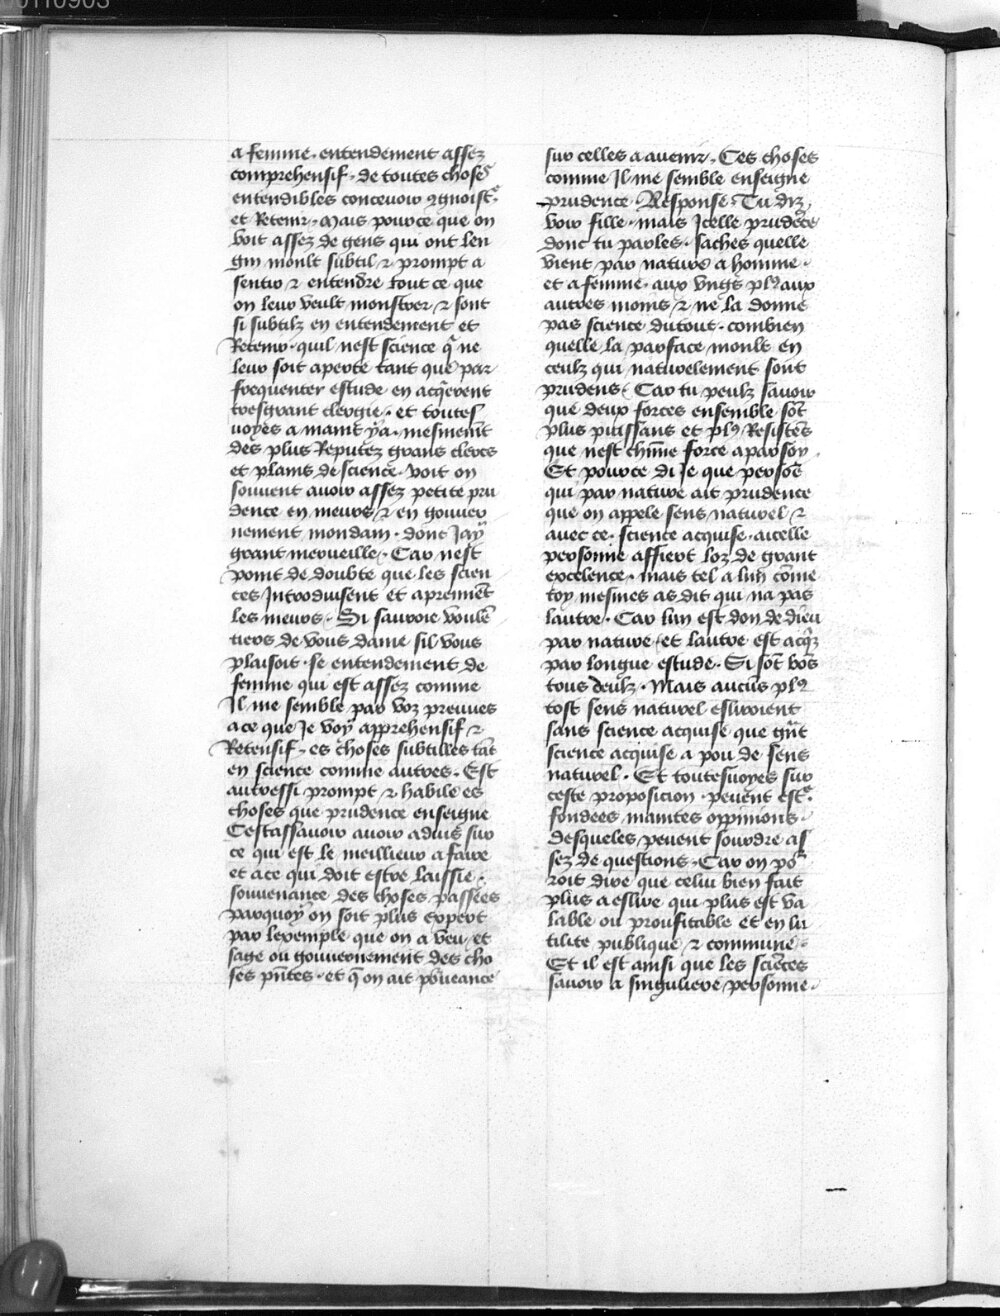 a femme. entendement assez
comprehensif. de toutes chosꝭ
entendibles concevoir ꝯgnoistꝭ
et Retenir. Mais pource que on
voit assez de gens qui ont len
gin moult subtil ⁊ prompt a
sentir ⁊ entendre tout ce que
on leur veult monstrer ⁊ sont
si subtilz en entendement et
Retenir. quil nest science q̄ ne
leur soit aperte tant que par
frequenter estude en acq̄erent
tresgrant clergie. et toutes
uoyes a maint ya. mesment
des plus Reputez grans clercs
et plains de science. voit on
souuent auoir assez petite pru
dence en meurs ⁊ en gouuer
nement mondain. dont Jay
grant merueille. Car nest
point de doubte que les scien
ces Introduisent et aprennēt
les meurs. Si sauroie voulē
tiers de vous dame sil vous
plaisoit. se entendement de
femme qui est assez comme
Il me semble par voz preuues
a ce que Je voy apprehensif ⁊
Retensif. es choses subtilles tāt
en science comme autres. Est
autressi prompt ⁊ habile es
choses que prudence enseigne
Cestassauoir auoir aduis sur
ce qui est le meillieur a faire
et a ce qui doit estre laissie.
souuenance des choses passees
parquoy on soit plus expert
par lexemple que on a veu. et
sage ou gouuernement des cho
ses pn̄tes. et q̄ on ait po̾ueance
sur celles a auenir. Ces choses
comme Il me semble enseigne
prudence. Response. Tu diz
voir fille. mais Icelle prudēce
dont tu parles. saches quelle
vient par nature a homme.
et a femme. aux vngs plꝰ aux
autres moins ⁊ ne la donne
pas science du tout. combien
quelle la parface moult en
ceulx qui naturelement sont
prudens. Car tu peulz sauoir
que deux forces ensemble sōt
plus puissans et plꝰ Resistēs
que nest ch̄une force a par soy.
Et pource di Je que persōe
qui par nature ait prudence
que on appele sens naturel ⁊
auec ce. science acquise. a icelle
personne affiert loz de grant
excelence. mais tel a lun cōme
toy mesmes as dit qui na pas
lautre. Car lun est don de dieu
par nature. et lautre est acq̄z
par longue estude. Si sōt bōs
tous deulx. Mais aucūs plꝰ
tost sens naturel esliroient
sans science acquise que gn̄t
science acquise a pou de sens
naturel. Et toutesuoyes sur
ceste proposicion. peuent estꝭ
fondees maintes oppinions.
desqueles peuent sourdre as
sez de questions. Car on po᷑
roit dire que celui bien fait
plus a eslire qui plus est va
lable ou prouffitable et en lu
tilite publique ⁊ commune.
Et il est ainsi que les sciēces
sauoir a singuliere personne.